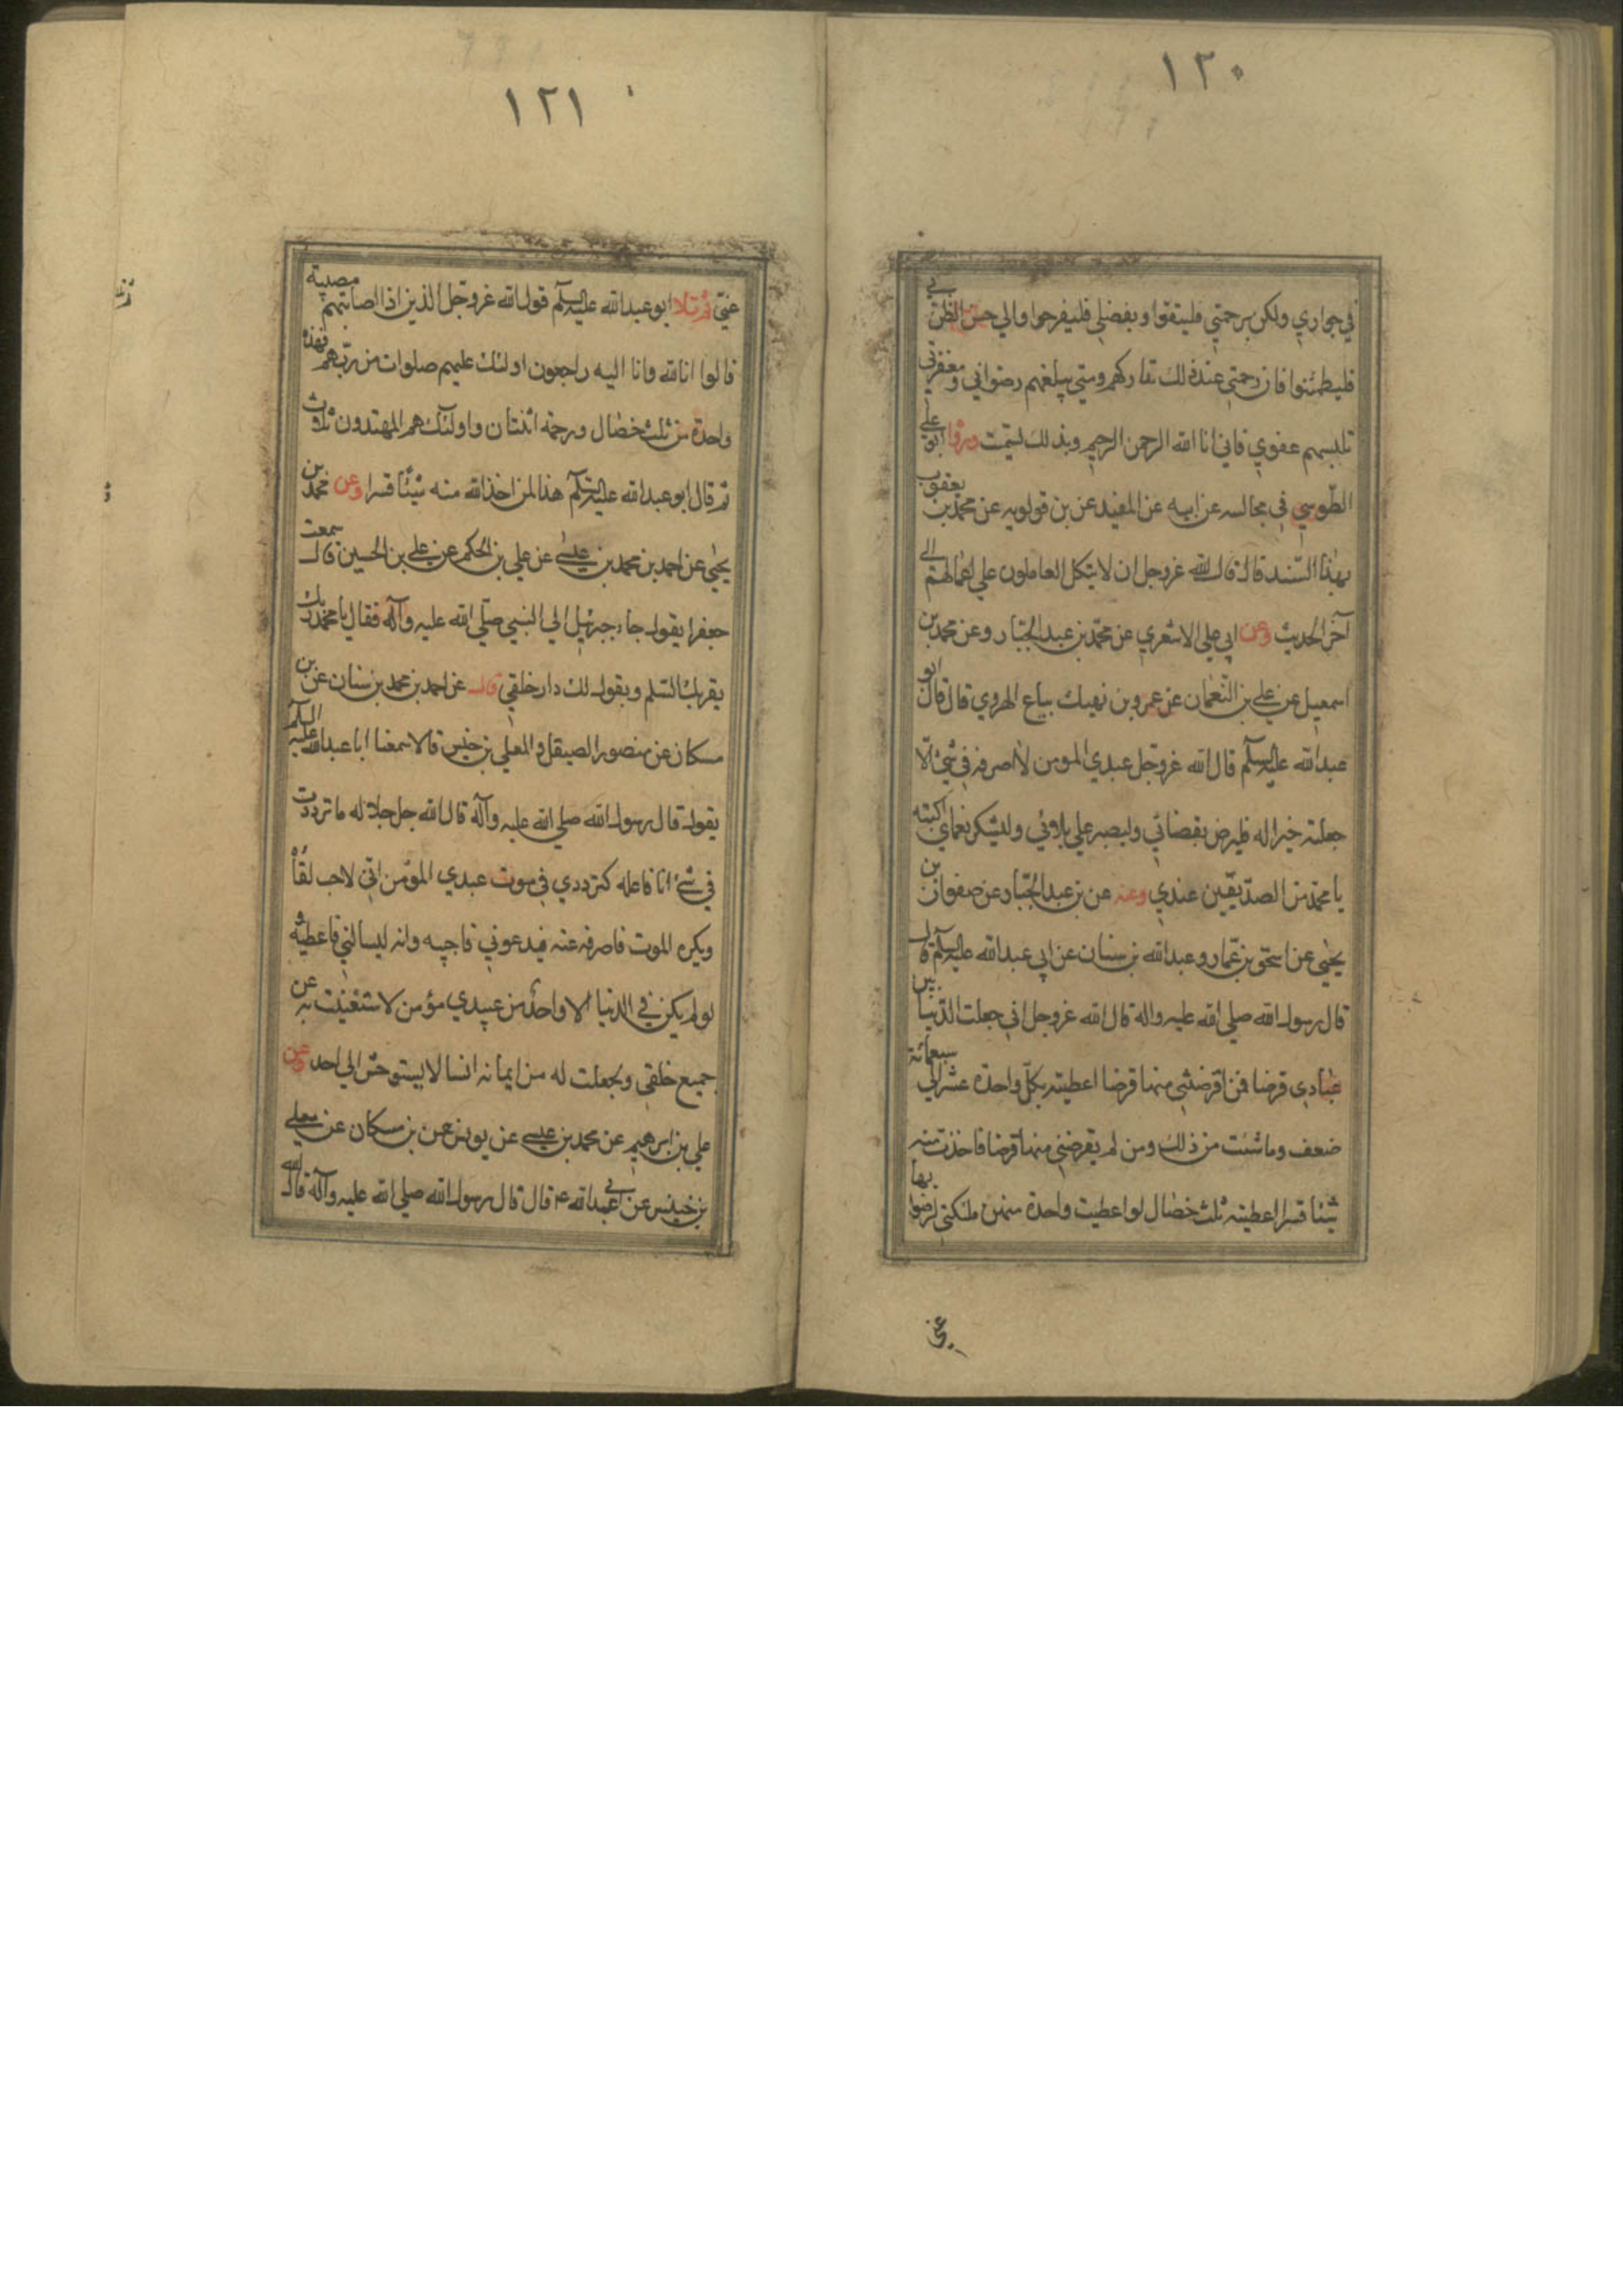 ١٢٠
في جواري ولكن برحمتي فليثقوا وبفضلي فليفرحوا والي حسن الظن بي
فليطمئنوا فان رحمتي عند ذلك تداركهم ومني يبلغهم رضواني ومغفرتي
تلبسهم عفوي فاني انا الله الرحمن الرحيم وبذلك تسميت وروا ابو علي
الطوسي في مجالسه عن ابيه عن المفيد عن بن قولويه عن محمد بن يعقوب
بهذا السند قال قال الله عزوجل ان لا يتكل العاملون علي اعمالهم الي
آخر الحديث وعن ابي علي الاشعري عن محمد بن عبد الجبار وعن محمد بن
اسمعيل عن علي بن النعمان عن عمرو بن نهيك بياع الهروي قال قال ابو
عبدالله عليه السلم قال الله عزوجل عبدي المومن لا اصرفه في شيء الا
جعلته خيرا له فليرض بقضائي وليصبر علي بلائي وليشكر نعماي اكتبه
يا محمد من الصديقين عندي وعنه عن بن عبد الجبار عن صفوان بن
يحيي عن اسحق بن عمار وعبدالله بن سنان عن ابي عبدالله عليه السلم قال
قال رسول الله صلي الله عليه واله قال الله عزوجل اني جعلت الدنيا بين
عبادي قرضا فمن اقرضني منها قرضا اعطيته بكل واحدة عشر الي سبعمائة
ضعف وما شئت من ذلك ومن لم يقرضني منها قرضا فاخذت منه
شيئا قسرا اعطيته ثلث خصال لو اعطيت واحدة منهن ملئكتي لرضوا بها
عني
١٢١
عني ثم تلا ابو عبدالله عليه السلم قول الله عزوجل الذين اذا اصابتهم مصيبة
قالوا انا لله وانا اليه راجعون اولئك عليهم صلوات من ربهم فهذه
واحدة من ثلث خصال ورحمة اثنتان واولئك هم المهتدون ثلاث
ثم قال ابو عبدالله عليه السلم هذا لمن اخذ الله منه شيئا قسرا وعن محمد بن
يحيي عن احمد بن محمد بن عيسي عن علي بن الحكم عن علي بن الحسين قال سمعت
جعفرا يقول جاء جبرئيل الي النبي صلي الله عليه وآله فقال يا محمد ربك
يقربك السلم ويقول لك دار خلقي قال عن احمد بن محمد بن سنان عن بن
مسكان عن منصور الصيقل والمعلي بن خنيس قالا سمعنا ابا عبدالله عليه السلم
يقول قال رسول الله صلي الله عليه وآله قال الله جل جلاله ما ترددت
في شئ انا فاعله كترددي في موت عبدي المؤمن اني لاحب لقاءه
ويكره الموت فاصرفه عنه فيدعوني فاجيبه وانه ليسالني فاعطيه و
لو لم يكن في الدنيا الا واحد من عبيدي مؤمن لاستغنيت به عن
جميع خلقي ولجعلت له من ايمانه انسا لا يستوحش الي احد وعن
علي بن ابرهيم عن محمد بن عيسي عن يونس عن بن مسكان عن معلي
بن خنيس عن ابي عبدالله ع قال قال رسول الله صلي الله عليه وآله قال الله